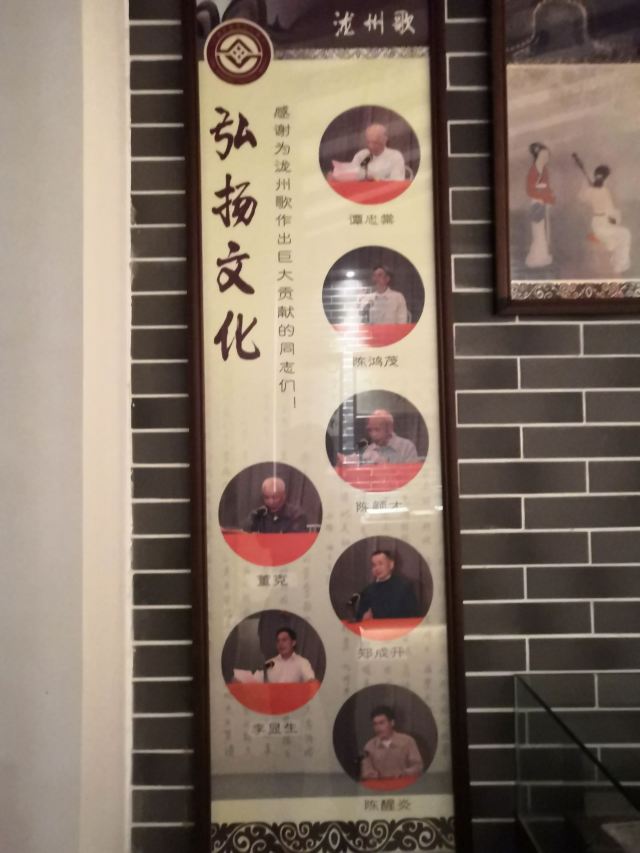 泷州歌
弘扬文化
感谢为泷州歌作出巨大贡献的同志们！
谭志棠
陈鸿茂
董克
郑成升
李显生
陈醒炎